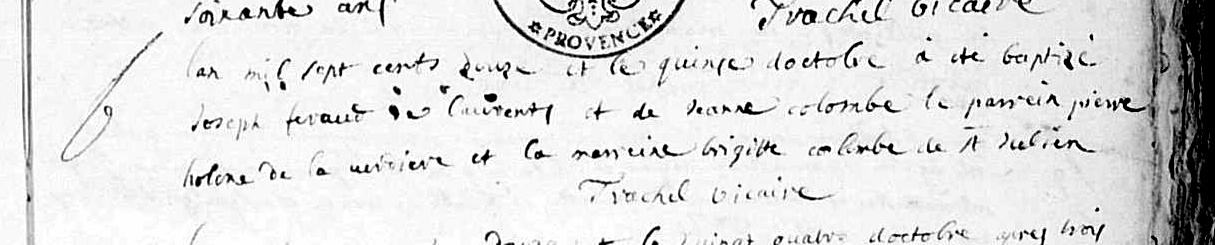 soixante ans
Trachel vicaire
PROVENCE
b
lan mil sept cents douze et le quinse doctobre à été baptizé
Joseph feraud de laurents et de Jeanne colombe le parrein pierre
holone de la verriere et la marreine brigitte colombe de st Julien
Trachel vicaire
douze et le vingt quatre doctobre apres trois